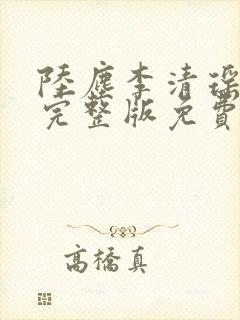 陸塵李清瑶
完整版免費
高橋真